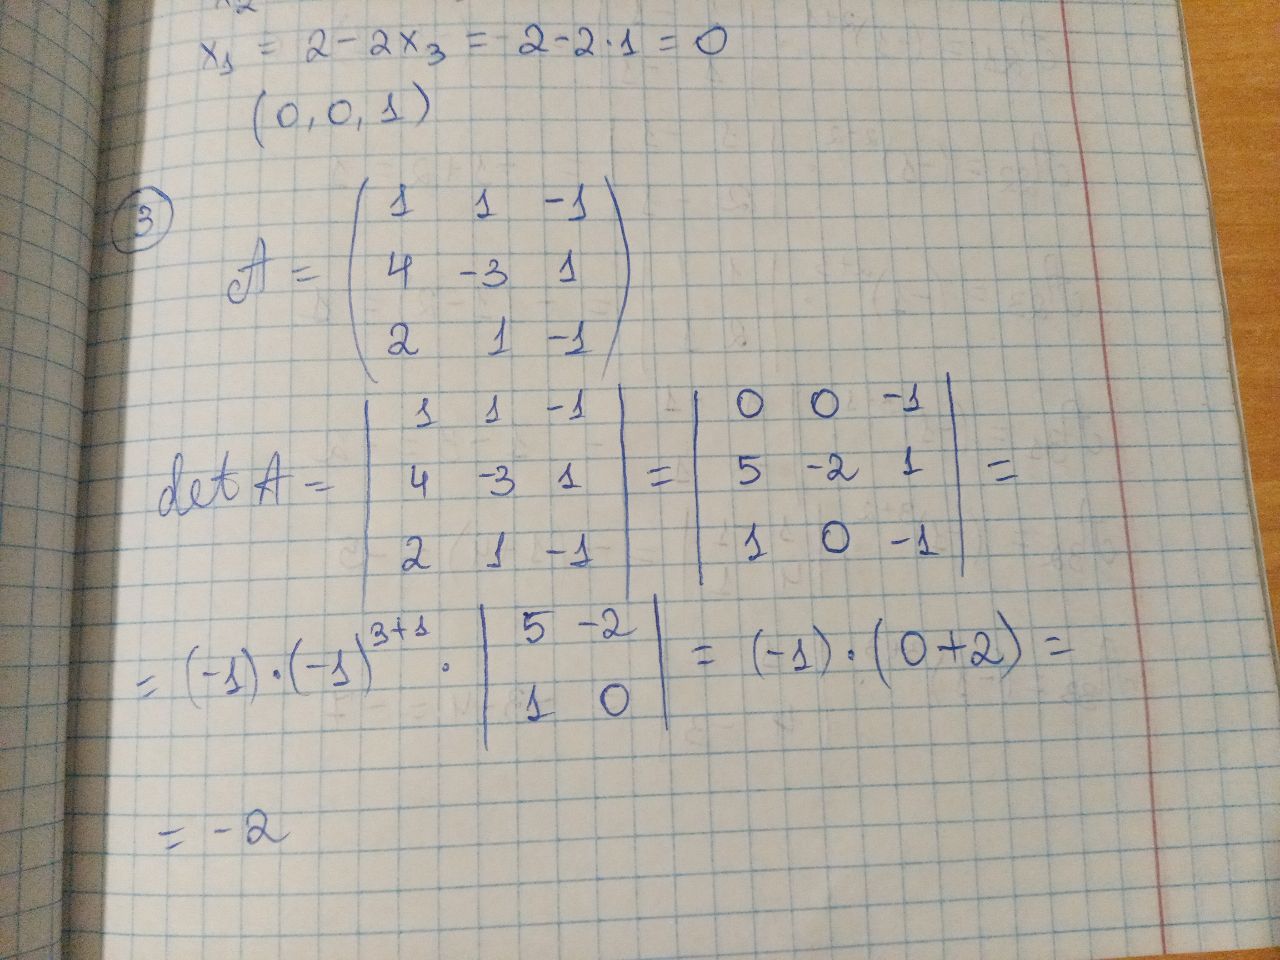 x₂
x₁ = 2 - 2x₃ = 2 - 2·1 = 0
(0, 0, 1)
3
A = ( 1 1 -1
4 -3 1
2 1 -1 )
det A = | 1 1 -1 | = | 0 0 -1 | =
| 4 -3 1 | | 5 -2 1 |
| 2 1 -1 | | 1 0 -1 |
= (-1)·(-1)³⁺¹ · | 5 -2 | = (-1)·(0+2) =
| 1 0 |
= -2